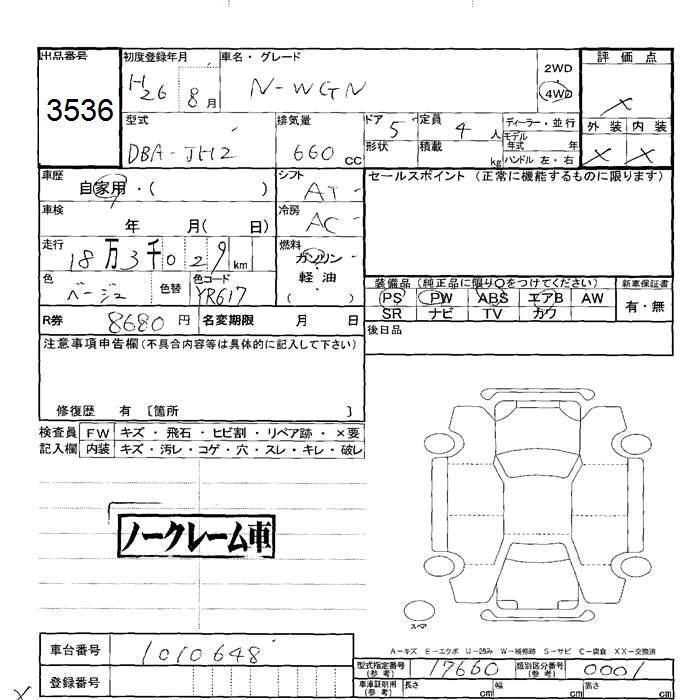 出品番号
3536
初度登録年月
H26 8月
車名・グレード
N-WGN
2WD
4WD
評価点
×
外装 内装
× ×
型式
DBA-JH2
排気量
660 cc
ドア 5
形状
定員 4 人
積載 kg
ディーラー・並行
モデル年式 年
ハンドル 左・右
車歴
自家用・( )
シフト
AT
車検
年 月( 日)
冷房
AC
走行
18万3千029km
燃料
ガソリン・軽油
( )
色
ベージュ
色替
色コード
YR617
R券 8680円
名変期限 月 日
セールスポイント(正常に機能するものに限ります)
装備品(純正品に限り○をつけてください)
PS PW ABS エアB AW
SR ナビ TV カワ
新車保証書
有・無
後日品
注意事項申告欄(不具合内容等は具体的に記入して下さい)
修復歴 有 〔箇所 〕
検査員記入欄
FW キズ・飛石・ヒビ割・リペア跡・×要
内装 キズ・汚レ・コゲ・穴・スレ・キレ・破レ
ノークレーム車
スペア
A−キズ E−エクボ U−凹み W−補修跡 S−サビ C−腐食 XX−交換済
車台番号
1010648
登録番号
型式指定番号(参考)
17660
類別区分番号(参考)
0001
車庫証明用(参考)
長さ cm
幅 cm
高さ cm